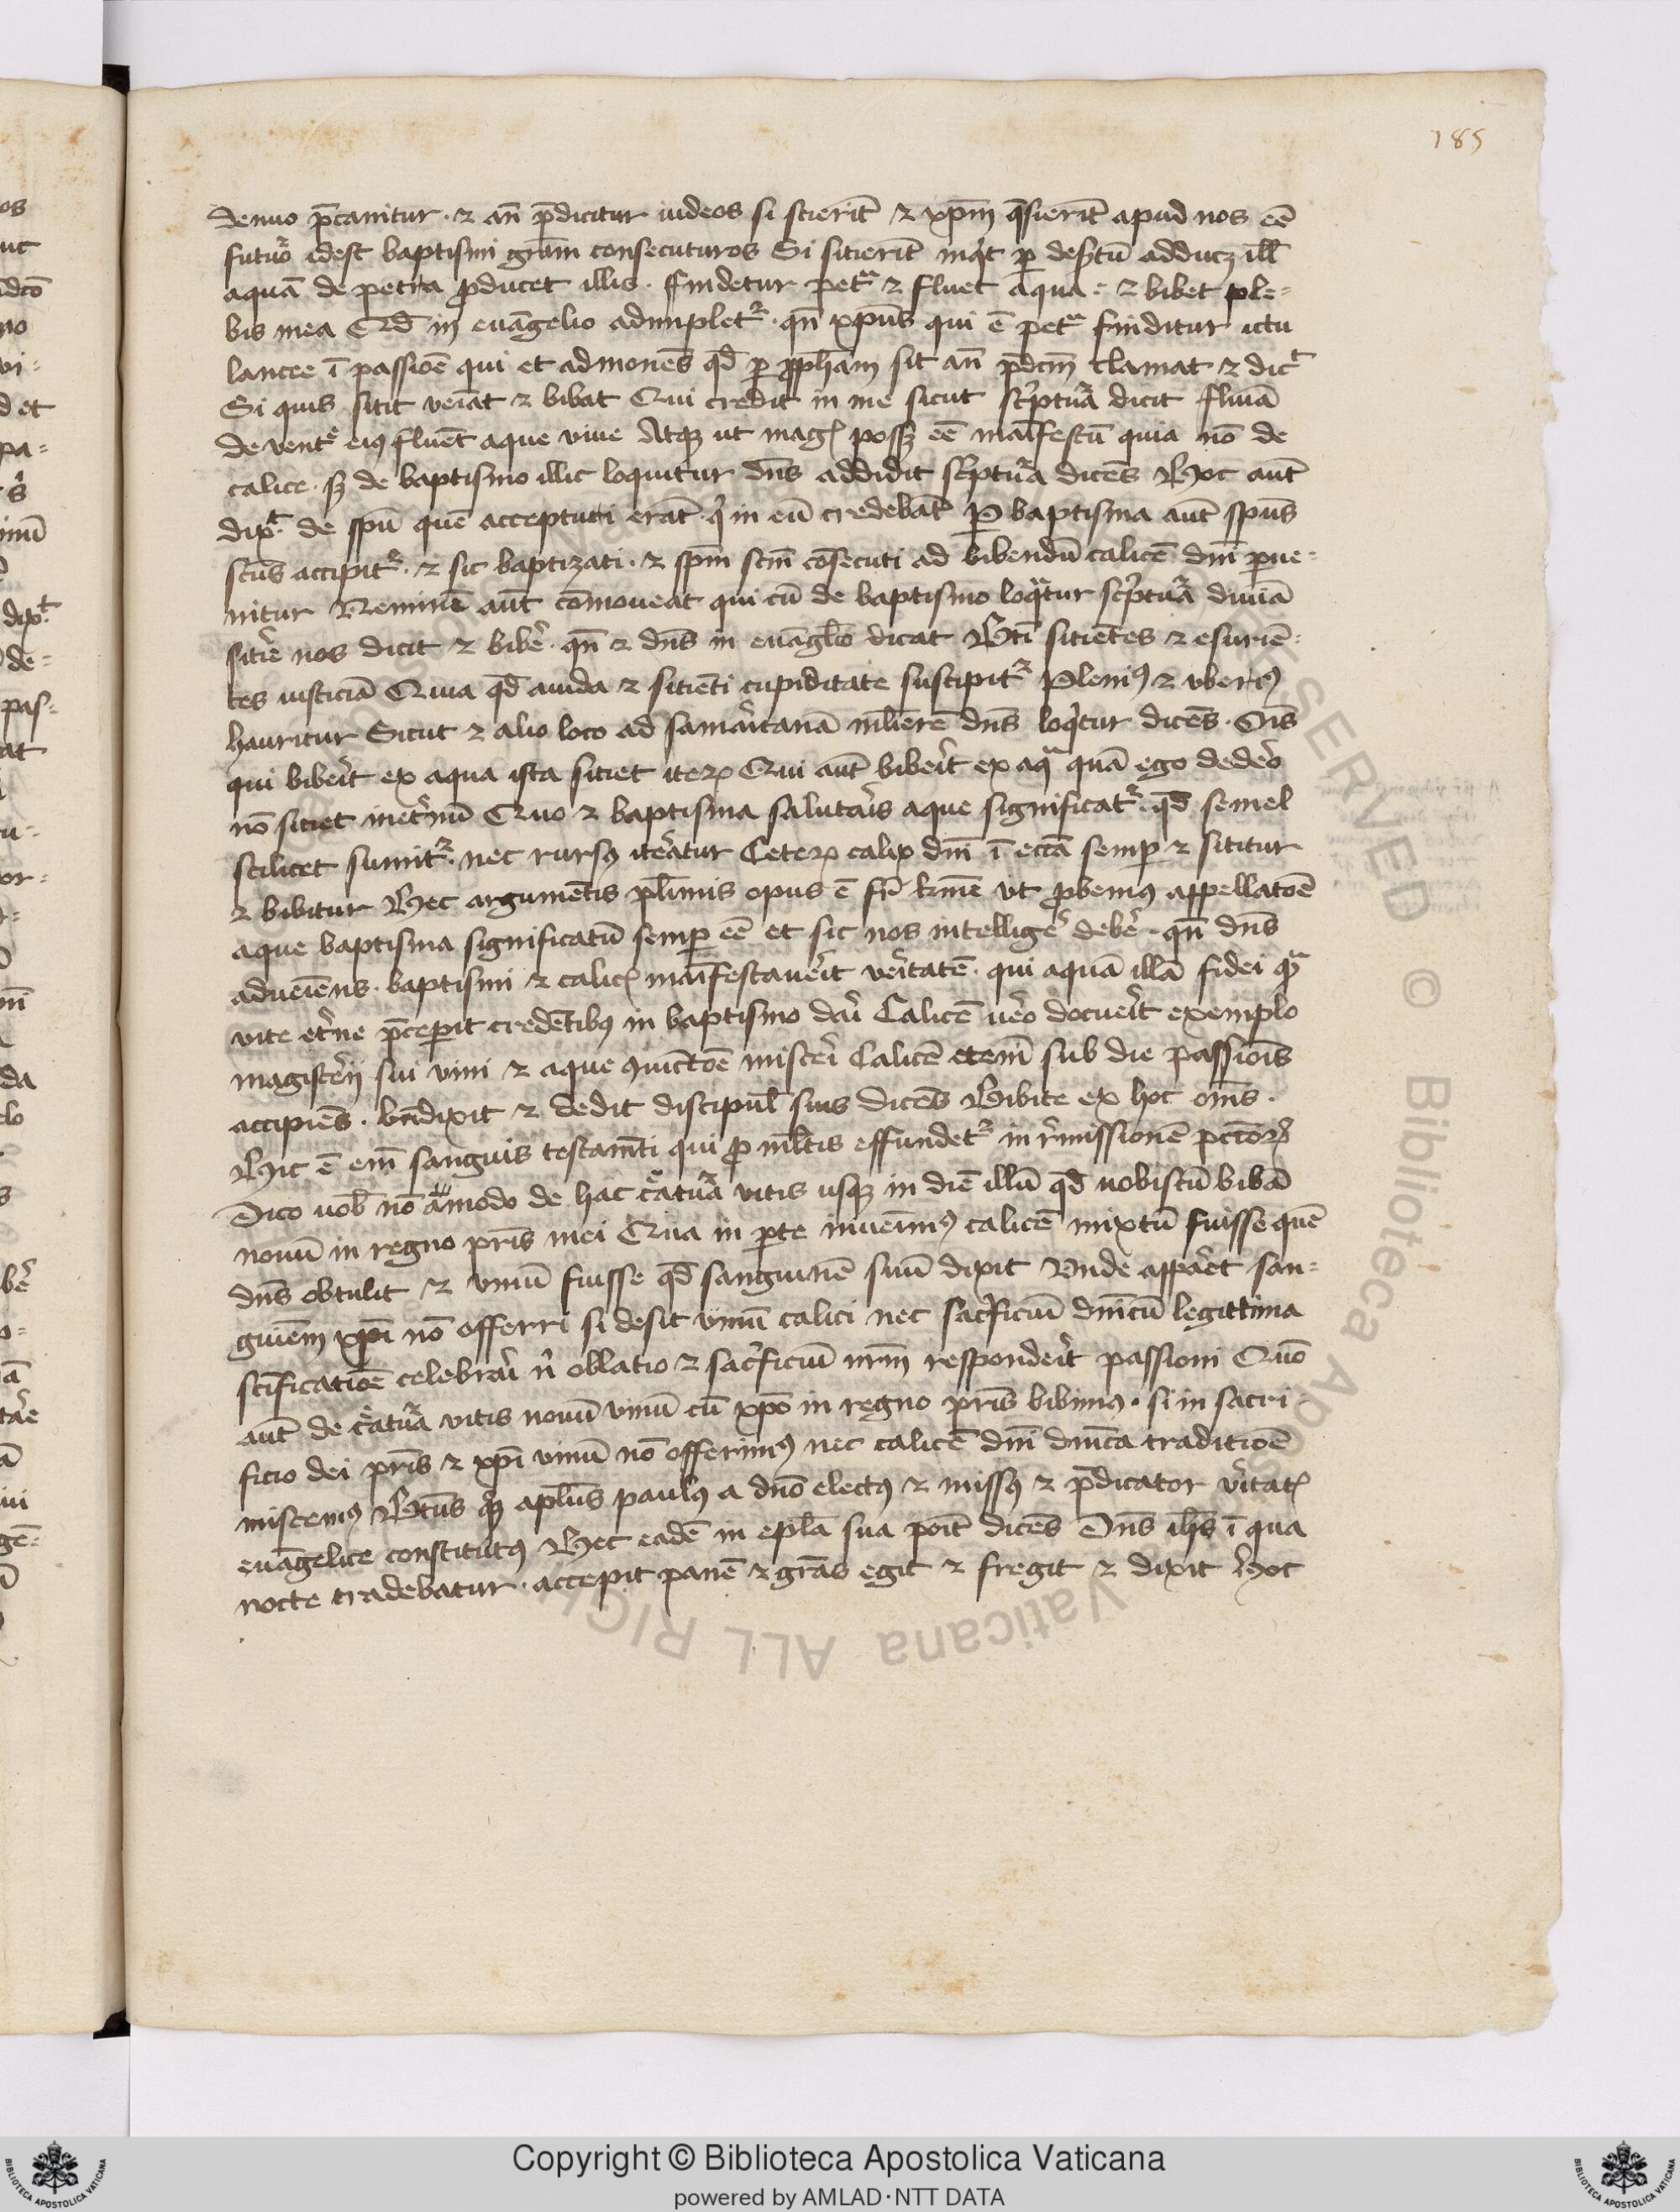 185
denuo p̄canitur · ⁊ an̄ p̄dicitur iudeos si scierīt ⁊ xp̄m q̄sierīt apud nos eē
futuro idest baptismi grām consecuturos Si sitierīt inqͥt ꝑ desertū adducꝫ ill̄
aquā de petra ꝓducet illis · ffindetur petͣ ⁊ fluet aqua · ⁊ bibet ple=
bis mea Qd̄ in euāgelio adimpletᷣ · qn̄ xp̄us qui ē petͣ finditur ictu
lancee ī passiōe qui et admonēs qd̄ ꝑ ꝓph̄am sit an̄ p̄dcm̄ clamat ⁊ dicͭ
Si quis sitit veīat ⁊ bibat Qui credit in me sicut scͥptuᷓ dicit fluīa
de ventͤ eiꝰ fluēt aque viue Atqꝫ ut magꝭ possꝫ eē māifestū quia nō de
calice · sꝫ de baptismo illic loquitur dn̄s addidit scͥptuᷓ dicēs Hoc aūt
dixͭ · de spū quē accepturi erāt · qͥ in eū credebāt P̱ baptisma aūt sp̄us
sc̄us accipitᷣ · ⁊ sic baptizati · ⁊ sp̄m sc̄m cōsecuti ad bibendū calicē dn̄i ꝑue=
nitur Neminē aūt cōmoueat qui cū de baptismo loqͣtur scͥptuᷓ diuīa
sitir̄e nos dicit ⁊ biber̄ · qn̄ ⁊ dn̄s in euāgl̄io dicat Bt̄i sitiētes ⁊ esuriē=
tes iusticiā Quia qd̄ auida ⁊ sitiēti cupiditate suscipitᷣ Pleniꝰ ⁊ vberiꝰ
hauritur Sicut ⁊ alio loco ad samaritanā ml̄ierē dn̄s loqͥtur dicēs · Oīs
qui biberit ex aqua ista sitiet iterꝝ Qui aūt biberit ex aqͣ quā ego dedero
nō sitiet inet̄nū Quo ⁊ baptisma salutaris aque significatᷣ · qd̄ semel
scilicet sumitᷣ · nec rursꝰ iteratur Ceterꝝ calix dn̄i ī eccā semꝑ ⁊ sititur
⁊ bibitur Nec argumētis pl̄imis opus ē fr̄ kme vt ꝓbemꝰ appellatōē
aque baptisma significatū semꝑ eē et sic nos intelliger̄ deber̄ · qn̄ dn̄s
adueīens · baptismi ⁊ calicꝭ māifestauerit veritatē · qui aquā illā fidei
vite et̄ne p̄cepit credētibꝰ in baptismo dari Calicē uero docuerit exemplo
magisterij sui vini ⁊ aque ꝯiūctōē misceri Calicē etem̄ sub die passiōis
accipiēs · bn̄dixit ⁊ dedit discipul̄ suis dicēs Bibite ex hoc om̄s ·
Hic ē em̄ sanguis testamīti qui ꝓ ml̄tis effundetᷣ in r̄missionē pctōrꝝ
Dico uob̄ nō amodo de hac cͤatuᷓ vitis usqꝫ in diē illū qd̄ uobiscū bibā
nouū in regno pr̄is mei Qua in ꝑte inueīmꝰ calicē mixtū fuisse quē
dn̄s obtulit ⁊ vinū fuisse qd̄ sanguinē suū dixit Vnde apparet san=
guīem xp̄i nō offerri si desit vinū calici nec sacͥficiū dn̄icū legittima
scīficatiōē celebrari n̄ oblatio ⁊ sacͥficiū nr̄m responderit passioni Quō
aūt de cͤatuᷓ vitis nouū vinū cū xp̄o in regno pr̄is bibimꝰ · si in sacri=
ficio dei pr̄is ⁊ xp̄i vinū nō offerimꝰ nec calicē dn̄i dn̄ica traditiōē
miscemꝰ Bt̄us qͦꝫ apl̄us paulꝰ a dn̄o electꝰ ⁊ missꝰ ⁊ p̄dicator v̄itatꝭ
euāgelice constitutꝰ Hec eadē in epl̄a sua poīt dicēs Dn̄s ih̄s ī qua
nocte tradebatur · accepit panē ⁊ gr̄as egit ⁊ fregit ⁊ dixit Hoc
Copyright © Biblioteca Apostolica Vaticana
powered by AMLAD·NTT DATA